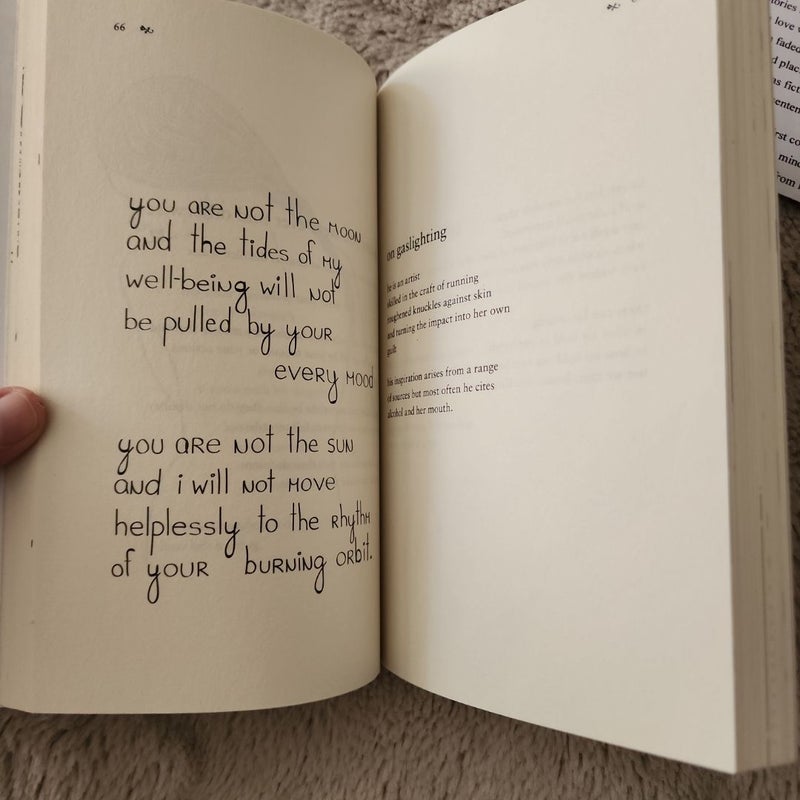 66
you are not the moon
and the tides of my
well-being will not
be pulled by your
every mood
you are not the sun
and i will not move
helplessly to the rhythm
of your burning orbit.
on gaslighting
he is an artist
skilled in the craft of running
roughened knuckles against skin
and turning the impact into her own
guilt
his inspiration arises from a range
of sources but most often he cites
alcohol and her mouth.
tories
love
faded
d plac
as fict
senten
rst co
mind
from